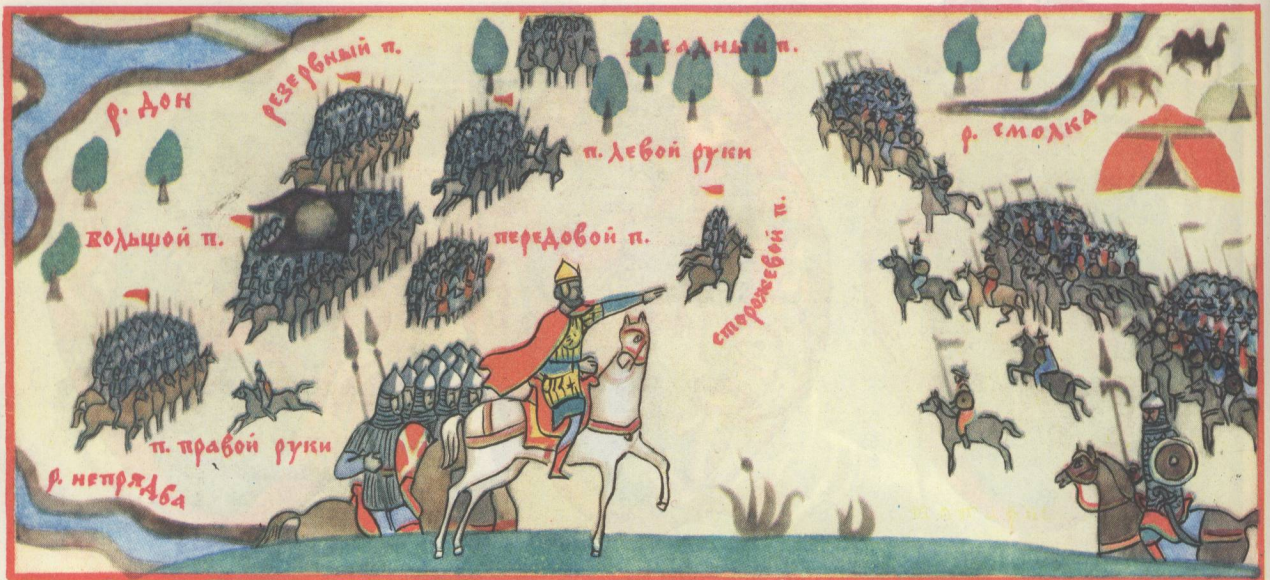 резервный п.
засадный п.
р. Дон
п. левой руки
р. смолка
большой п.
передовой п.
сторожевой п.
п. правой руки
р. непрядва